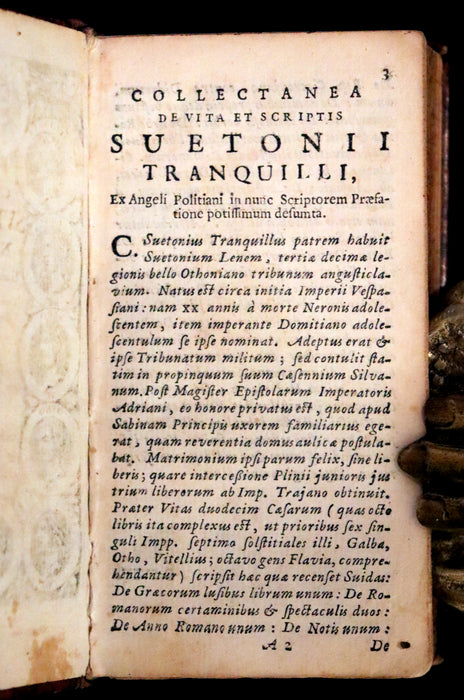 3
COLLECTANEA
DE VITA ET SCRIPTIS
SUETONII
TRANQUILLI,
Ex Angeli Politiani in nunc Scriptorem Præfa-
tione potiſſimum deſumta.
C. Suetonius Tranquillus patrem habuit
Suetonium Lenem, tertiæ decimæ le-
gionis bello Othoniano tribunum anguſticla-
vium. Natus eſt circa initia Imperii Veſpa-
ſiani: nam XX annis à morte Neronis adole-
ſcentem, item imperante Domitiano adole-
ſcentulum ſe ipſe nominat. Adeptus erat &
ipſe Tribunatum militum; ſed contulit ſta-
tim in propinquum ſuum Cæſennium Silva-
num. Poſt Magiſter Epiſtolarum Imperatoris
Adriani, eo honore privatus eſt, quod apud
Sabinam Principis uxorem familiarius ege-
rat, quam reverentia domus aulicæ poſtula-
bat. Matrimonium ipſi parum felix, ſine li-
beris; quare interceſſione Plinii junioris jus
trium liberorum ab Imp. Trajano obtinuit.
Præter Vitas duodecim Cæſarum (quas octo
libris ita complexus eſt, ut prioribus ſex ſin-
guli Impp. ſeptimo ſolſtitiales illi, Galba,
Otho, Vitellius; octavo gens Flavia, compre-
hendantur) ſcripſit hæc quæ recenſet Suidas:
De Græcorum luſibus librum unum: De Ro-
manorum certaminibus & ſpectaculis duos:
De Anno Romano unum: De Notis unum:
A 2 De